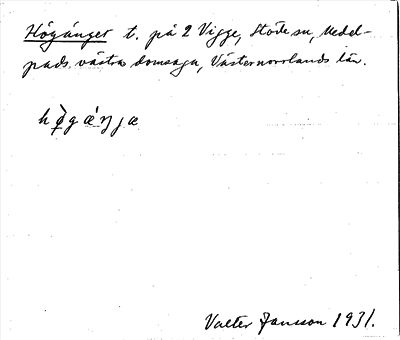 Högånger t. på 2 Vigge, Stöde sn, Medel-
pads västra domsaga, Västernorrlands län.
hø̀gæ´ŋjæ
Valter Jansson 1931.